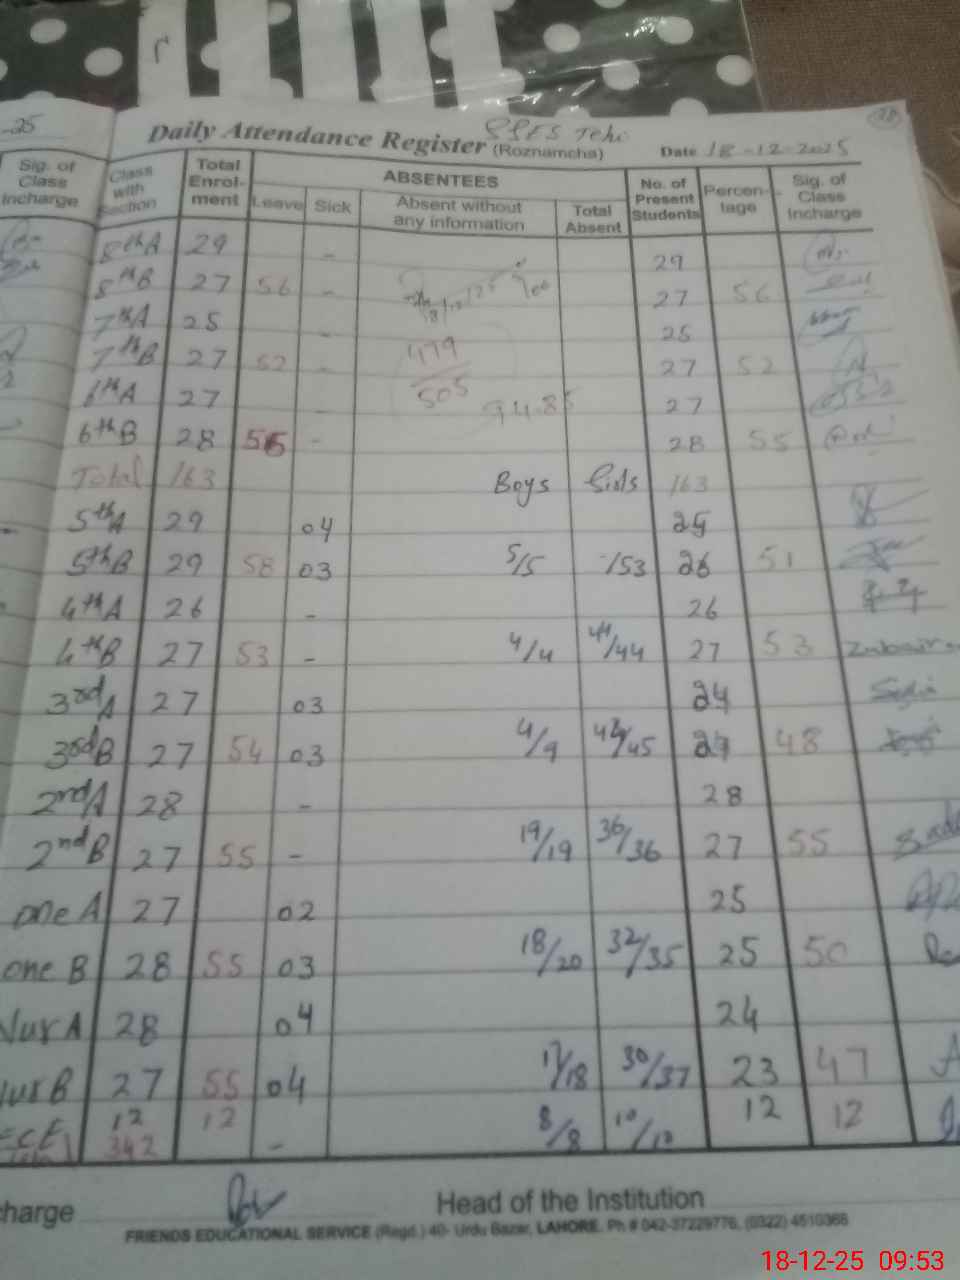 -25
Daily Attendance Register (Roznamcha)
Date 18-12-2025
Sig. of Class Incharge
Class with Section
Total Enrol-ment
ABSENTEES
Leave
Sick
Absent without any information
Total Absent
No. of Present Students
Percen-tage
Sig. of Class Incharge
8thA 29 - 29
8thB 27 56 - 27 56
7thA 25 - 25
7thB 27 52 - 479/505 27 52
6thA 27 94.85 27
6thB 28 55 - 28 55
Total 163 Boys Girls 163
5thA 29 04 25
5thB 29 58 03 5/5 -/53 26 51
4thA 26 - 26
4thB 27 53 - 4/4 44/44 27 53 Zubair
3rdA 27 03 24
3rdB 27 54 03 4/9 /45 24 48
2ndA 28 - 28
2ndB 27 55 - 19/19 36/36 27 55
one A 27 02 25
one B 28 55 03 18/20 32/35 25 50
Nur A 28 04 24
Nur B 27 55 04 17/18 30/37 23 47
ECE 12 12 - 8/8 10/10 12 12
Total 342
charge
Head of the Institution
FRIENDS EDUCATIONAL SERVICE (Regd.) 40- Urdu Bazar, LAHORE. Ph # 042-37229776, (0322) 4510366
18-12-25 09:53